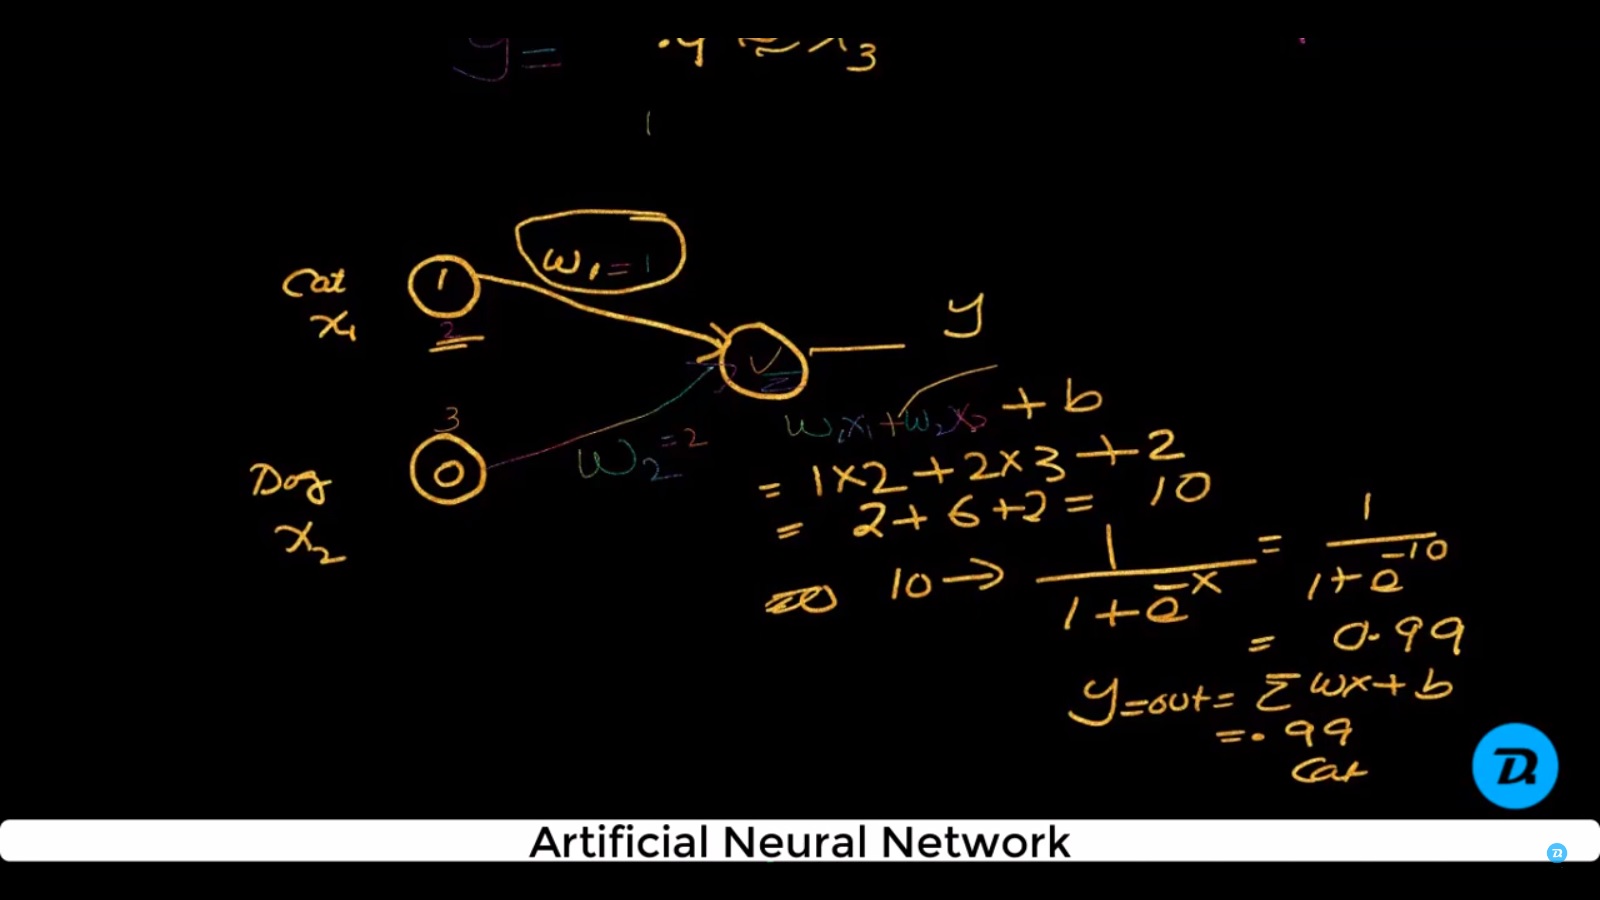 y =
x3
1
w1 = 1
Cat 1
x1 2
y
3
w1x1 + w2x2 + b
w2 = 2
Dog 0
x2
= 1×2 + 2×3 + 2
= 2 + 6 + 2 = 10
10 → 1/(1 + e^-x) = 1/(1 + e^-10)
= 0.99
y = out = Σ wx + b
= .99
Cat
Artificial Neural Network